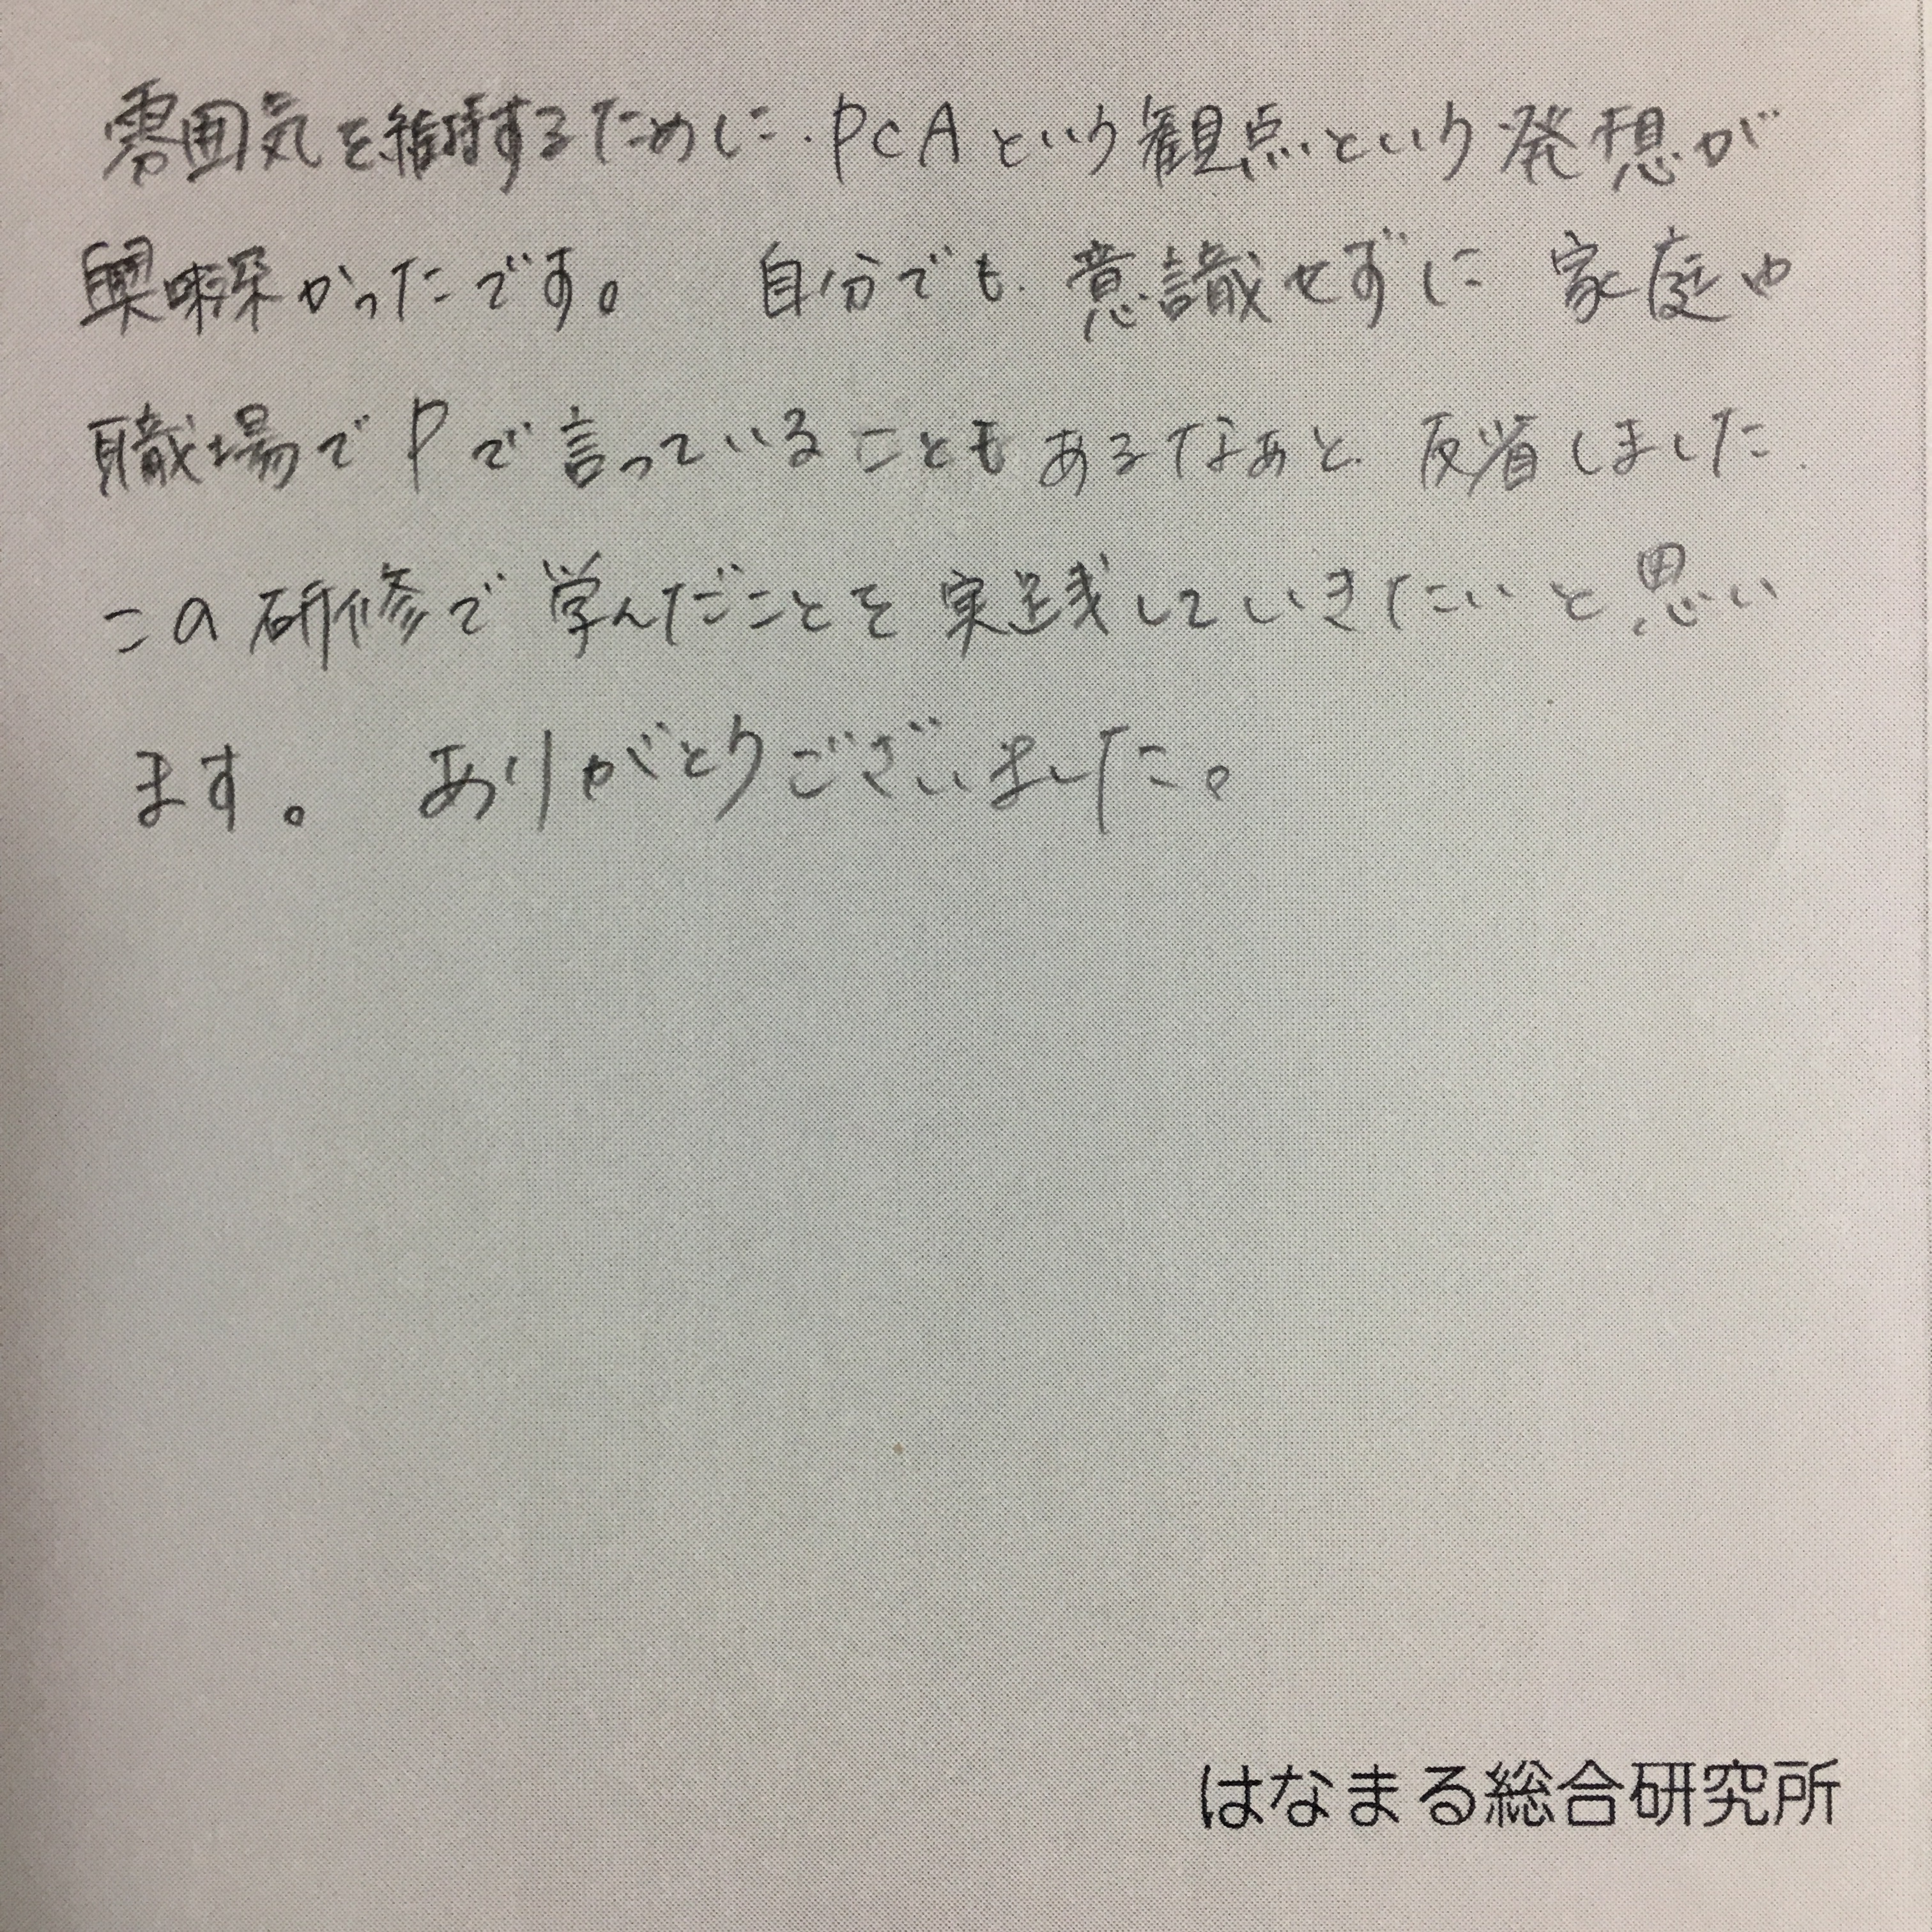 雰囲気を維持するために、PCAという観点という発想が
興味深かったです。 自分でも、意識せずに 家庭や
職場でPで言っていることもあるなぁと、反省しました。
この研修で学んだことを実践していきたいと思い
ます。 ありがとうございました。
はなまる総合研究所